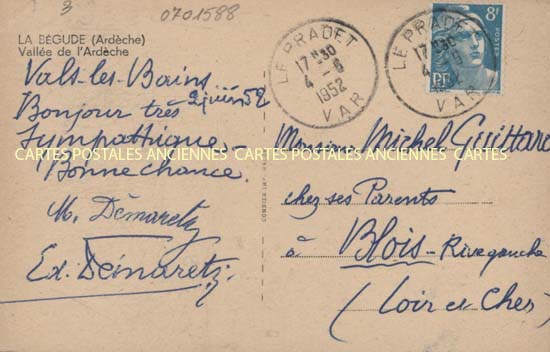 3
0701588
LA BÉGUDE (Ardèche)
Vallée de l'Ardèche
Vals-les-Bains
2 juin 52
Bonjour très
Sympathique _
Bonne chance.
M. Démaretz
Ed. Démaretz
LE PRADET
17H30
4 - 6
1952
VAR
LE PRADET
17H30
4 - 6
1952
VAR
8F
POSTES
RF
Monsieur Michel Guittard
chez ses Parents
à Blois - Rive gauche
(Loir et Cher)
CARTES POSTALES ANCIENNES CARTES POSTALES ANCIENNES CARTES